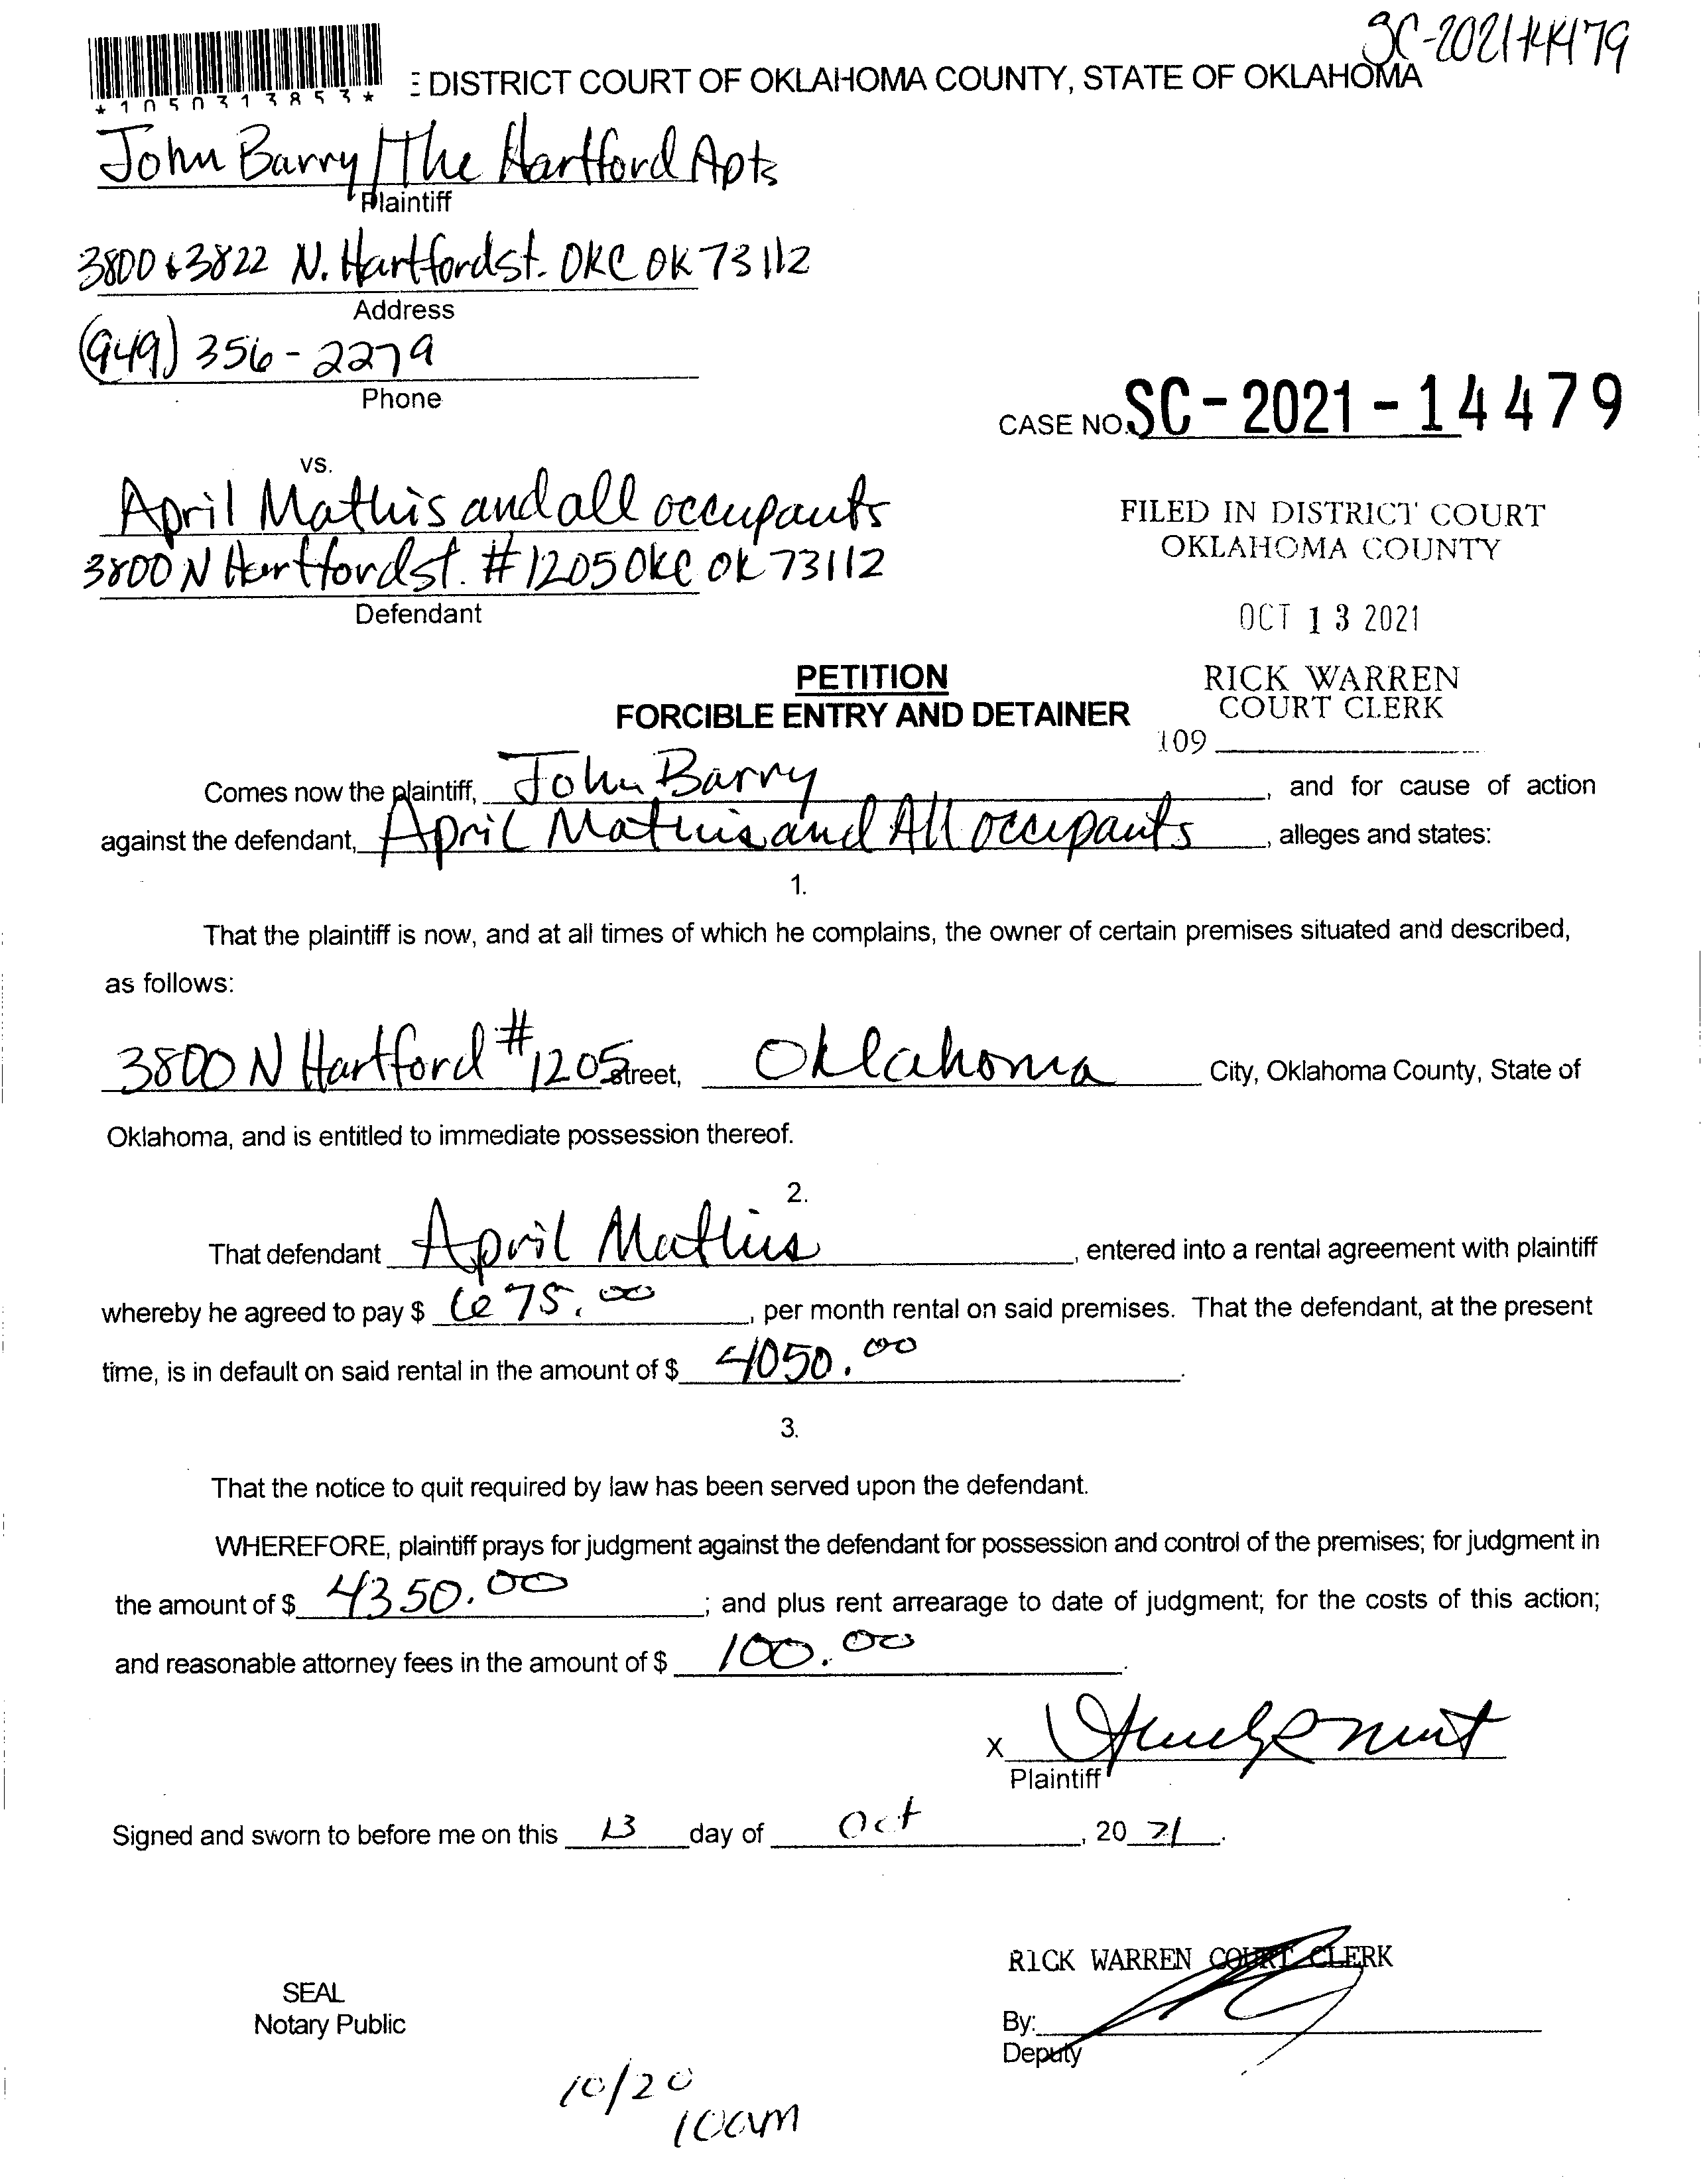 SC-2021-14479
*1050313853*
E DISTRICT COURT OF OKLAHOMA COUNTY, STATE OF OKLAHOMA
John Barry/The Hartford Apts
Plaintiff
3800 & 3822 N. Hartford st. OKC OK 73112
Address
(949) 356-2279
Phone
CASE NO. SC-2021-14479
vs.
April Mathis and all occupants
3800 N Hartford st. #1205 OKC OK 73112
Defendant
FILED IN DISTRICT COURT
OKLAHOMA COUNTY
OCT 13 2021
RICK WARREN
COURT CLERK
109
PETITION
FORCIBLE ENTRY AND DETAINER
Comes now the plaintiff, John Barry, and for cause of action
against the defendant, April Mathis and All occupants, alleges and states:
1.
That the plaintiff is now, and at all times of which he complains, the owner of certain premises situated and described,
as follows:
3800 N Hartford #1205 Street, Oklahoma City, Oklahoma County, State of
Oklahoma, and is entitled to immediate possession thereof.
2.
That defendant April Mathis, entered into a rental agreement with plaintiff
whereby he agreed to pay $ 675.00, per month rental on said premises. That the defendant, at the present
time, is in default on said rental in the amount of $ 4050.00.
3.
That the notice to quit required by law has been served upon the defendant.
WHEREFORE, plaintiff prays for judgment against the defendant for possession and control of the premises; for judgment in
the amount of $ 4350.00; and plus rent arrearage to date of judgment; for the costs of this action;
and reasonable attorney fees in the amount of $ 100.00.
X
Plaintiff
Signed and sworn to before me on this 13 day of Oct, 20 21.
RICK WARREN COURT CLERK
SEAL
Notary Public
By:
Deputy
10/20
10am